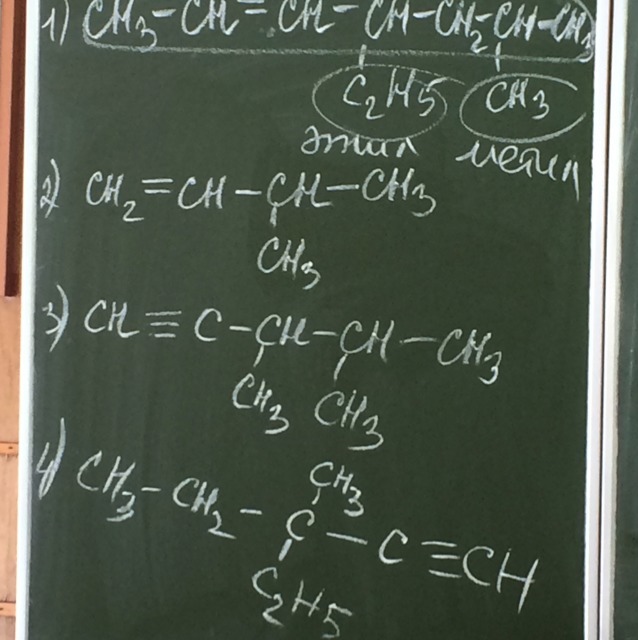 1) CH₃-CH=CH-CH-CH₂-CH-CH₃
C₂H₅ CH₃
этил метил
2) CH₂=CH-CH-CH₃
CH₃
3) CH≡C-CH-CH-CH₃
CH₃ CH₃
4) CH₃-CH₂-C-C≡CH
CH₃
C₂H₅